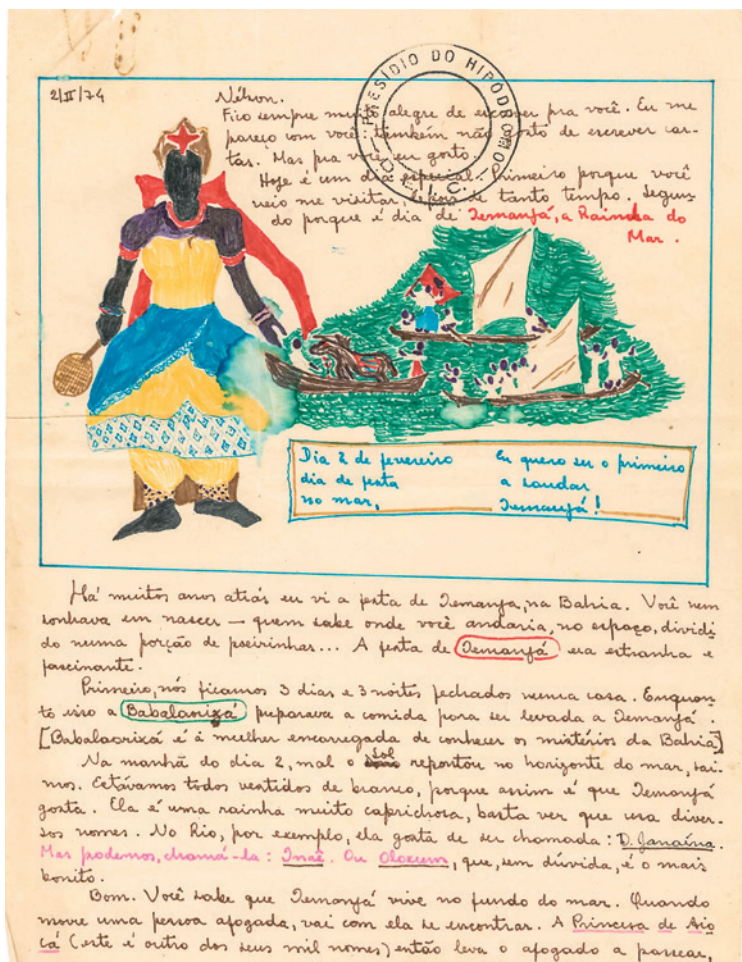 2/II/74
PRESÍDIO DO HIPÓDROMO
D.E.I.C.
Nélson.
Fico sempre muito alegre de escrever pra você. Eu me
pareço com você também não gosto de escrever car-
tas. Mas pra você eu gosto.
Hoje é um dia especial. Primeiro porque você
veio me visitar, depois de tanto tempo. Segun-
do porque é dia de Iemanjá, a Rainha do
Mar.
Dia 2 de fevereiro
dia de festa
no mar,
Eu quero ser o primeiro
a saudar
Iemanjá!
Há muitos anos atrás eu vi a festa de Iemanjá, na Bahia. Você nem
sonhava em nascer — quem sabe onde você andaria, no espaço, dividi
do numa porção de poeirinhas... A festa de Iemanjá era estranha e
fascinante.
Primeiro, nós ficamos 3 dias e 3 noites fechados numa casa. Enquan-
to isso a Babalaorixá preparava a comida para ser levada a Iemanjá.
[Babalaorixá é a mulher encarregada de conhecer os mistérios da Bahia]
Na manhã do dia 2, mal o sol repontou no horizonte do mar, saí-
mos. Estávamos todos vestidos de branco, porque assim é que Iemanjá
gosta. Ela é uma rainha muito caprichosa, basta ver que usa diver-
sos nomes. No Rio, por exemplo, ela gosta de ser chamada: D. Janaína.
Mas podemos, chamá-la: Inaê. Ou Oloxum, que, sem dúvida, é o mais
bonito.
Bom. Você sabe que Iemanjá vive no fundo do mar. Quando
morre uma pessoa afogada, vai com ela se encontrar. A Princesa de Aio
cá (este é outro dos seus mil nomes) então leva o afogado a passear,